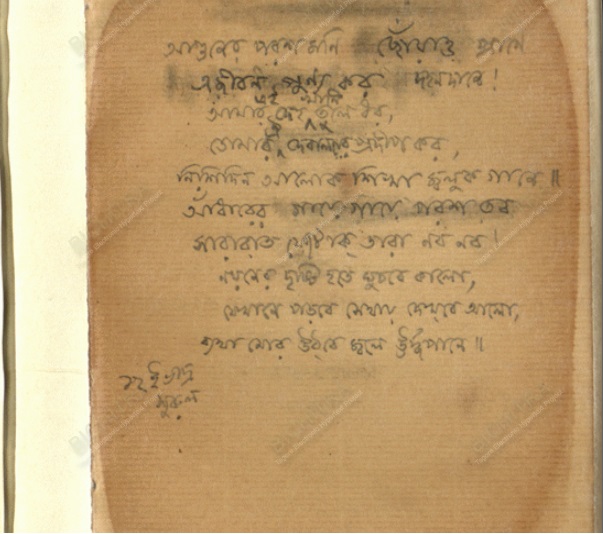 আগুনের পরশমনি ছোঁয়াও প্রাণে
এ জীবন পুণ্য কর দহনদানে!
আমার এই দেহখানি তুলে ধর,
তোমার ঐ দেবালয়ের প্রদীপ কর,
নিশিদিন আলোক শিখা জ্বলুক গানে॥
আঁধারের গায়ে গায়ে পরশ তব
সারারাত ফোটাক্ তারা নব নব।
নয়নের দৃষ্টি হতে ঘুচবে কালো,
যেখানে পড়বে সেথায় দেখবে আলো,
ব্যথা মোর উঠবে জ্বলে ঊর্দ্ধপানে॥
১১ই ভাদ্র
সুরুল